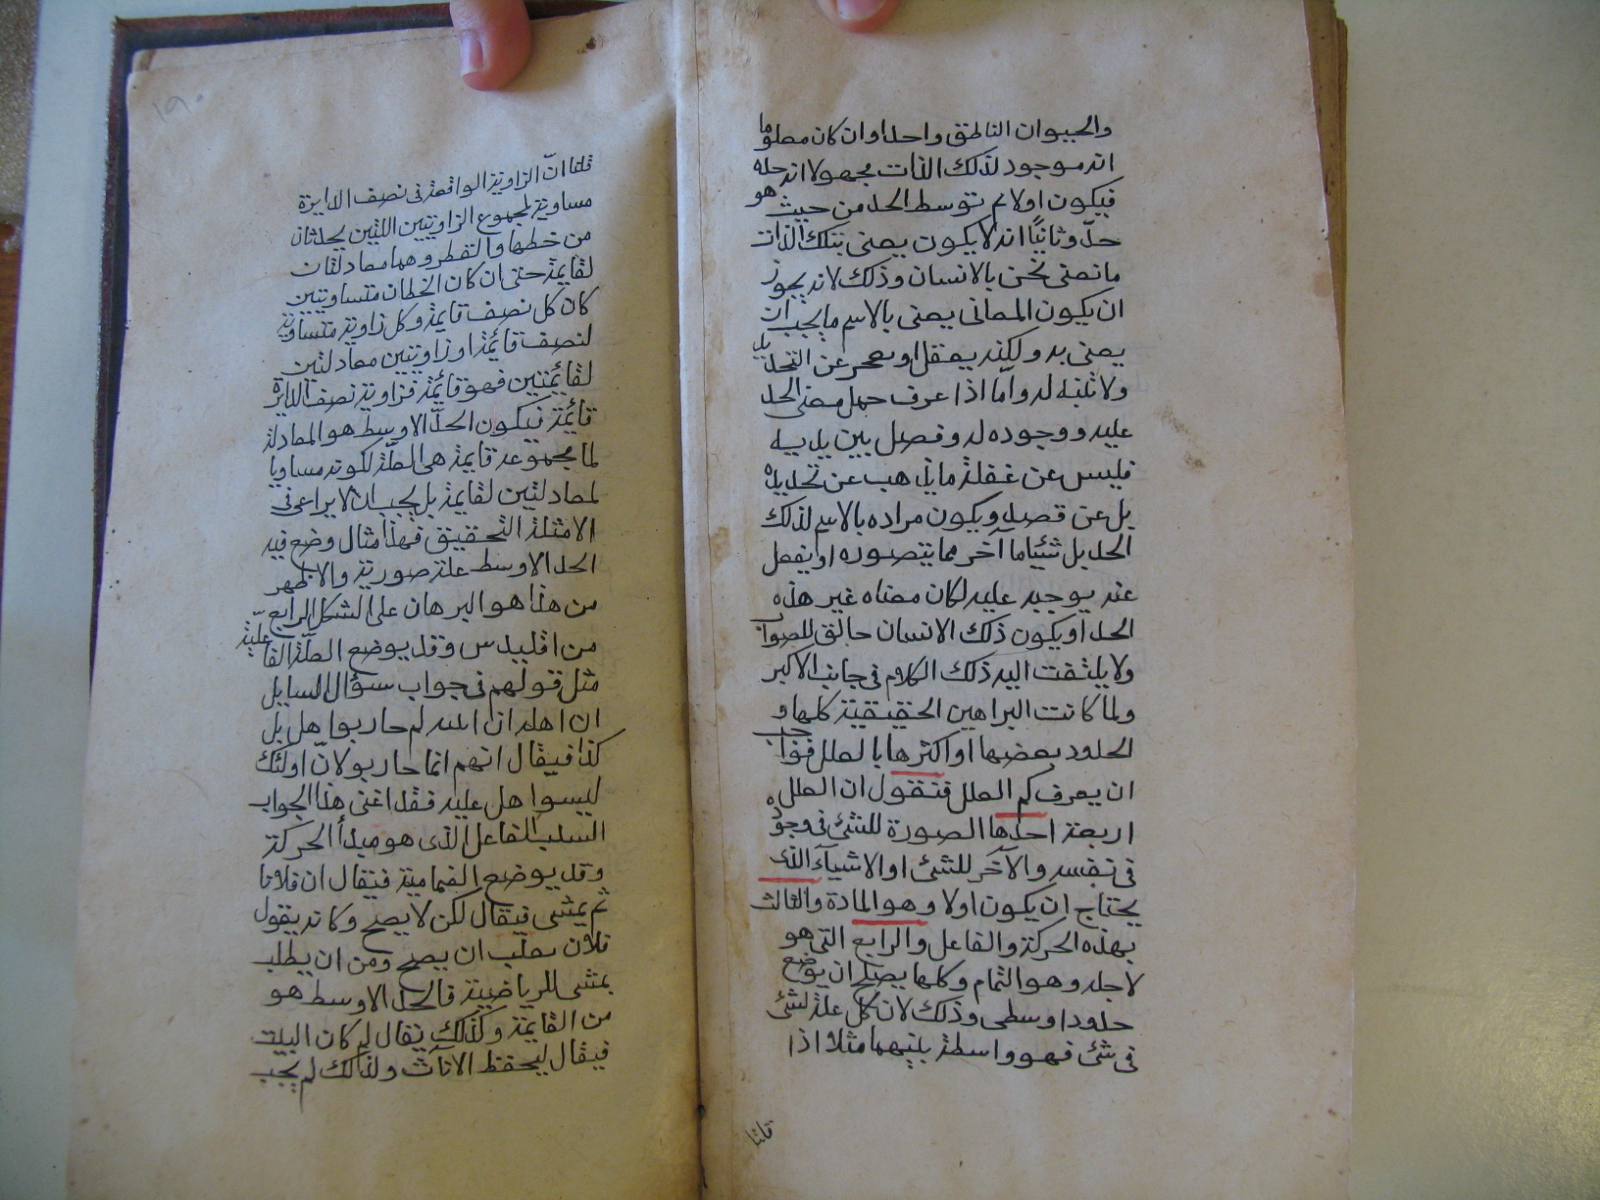 والحيوان الناطق واحدا وان كان معلوما
انه موجود لذلك الذات مجهولا انه حده
فيكون اولا لم توسط الحد من حيث هو
حدّ وثانيًا انه لا يكون يعنى بتلك الذات
ما نعنى نحن بالانسان وذلك لانه يجوز
ان يكون المعانى يعنى بالاسم ما يجب ان
يعنى به ولكنه يعقل او يعجز عن التحديد
ولا ثنبه له وامّا اذا عرف حمل معنى الحد
عليه ووجوده له وفصل بين يديه
فليس عن غفلة ما يذهب عن تحديده
بل عن قصد ويكون مراده بالاسم لذلك
الحد بل شيئا ما آخر مما يتصوره او يفعل
عنه يوجبه عليه لكان معناه غير هذه
الحد او يكون ذلك الانسان حالق للصواب
ولا يلتفت اليه ذلك الكلام فى جانب الاكبر
ولما كانت البراهين الحقيقية كلها و
الحدود بعضها او اكثرها بالعلل فواجب
ان يعرف كم العلل فنقول ان العلل
اربعة احدها الصورة للشئ فى وجوده
فى نفسه والآخر للشئ او الاشياء الذى
يحتاج ان يكون اولا وهو المادة والثالث
بهذه الحركة والفاعل والرابع التى هو
لاجله وهو التمام وكلها يصلح ان يوضع
حدودا وسطى وذلك لان كل علة لشئ
فى شئ فهو واسطة بينهما مثلا اذا
قلنا
١٩٠
قلنا انّ الزاوية الواقعة فى نصف الدايرة
مساوية لمجموع الزاويتين اللتين يحدثان
من خطها والقطر وهما معادلتان
لقايمة حتى ان كان الخطان متساويتين
كان كل نصف قايمة وكل زاوية متساوية
لنصف قائمة او زاويتين معادلتين
لقائمتين فهو قائمة فزاوية نصف الدايرة
قائمة فيكون الحدّ الاوسط هو المعادلة
لما مجموعه قايمة هى العلّة لكونه مساويا
لمعادلتين لقايمة بل يجب ان لا يراعى فى
الامثلة التحقيق فهذا مثال وضع فيه
الحد الاوسط علة صورية والاظهر
من هذا هو البرهان على الشكل الرابع
من اقليدس وقد يوضع العلّة الفاعليّة
مثل قولهم فى جواب سؤال السايل
ان اهله ان لم حاربوا هل بل
كذا فيقال انهم انما حاربو لانّ اولئك
ليسوا هل عليه فقد اغنى هذا الجواب
السلب الفاعل الذى هو مبدأ الحركة
وقد يوضع التمامية فيقال ان فلانا
ثم يمشى فيقال لكن لا يصح وكانه يقول
فلان يطلب ان يصح ومن ان يطلب
يمشى للرياضية فالحد الاوسط هو
من القايمة وكذلك يقال لم كان البيت
فيقال ليحفظ الاثاث ولذلك لم يجب